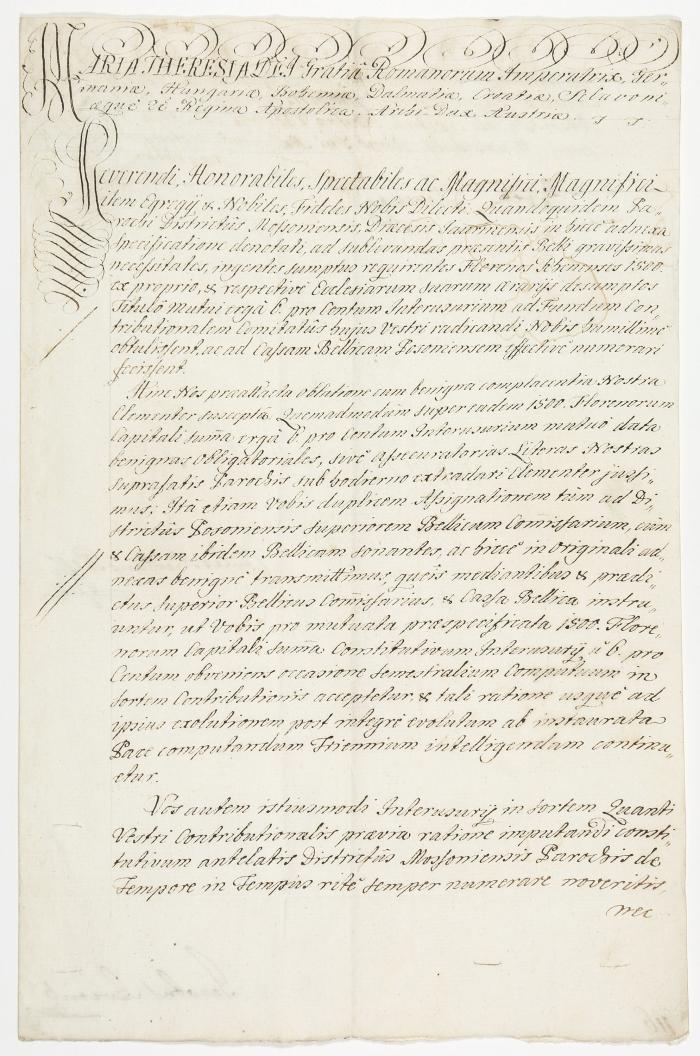 MARIA THERESIA DEI Gratiâ Romanorum Imperatrix, Ger„
maniæ, Hungariæ, Bohemiæ, Dalmatiæ, Croatiæ, Sclavoni„
æquè &c Regina Apostolica, Archi-Dux Austriæ.
Reverendi, Honorabiles, Spectabiles ac Magnifici, Magnifici
item Egregij & Nobiles, Fideles Nobis Dilecti. Quandoquidem Pa„
rochi Districtûs Mosoniensis, Diæcesis Jaurinensis in hicce adnexa
Specificatione denotati, ad sublevandas præsentis Belli gravissimas
necessitates, ingentes sumptus requirentes Florenos Rhenenses 1500.
ex proprio, & respectivè Ecclesiarum suarum ærarijs desumptos
Titulô Mutui ergà 6. pro Centum Interusurium ad Fundum Con„
tributionalem Comitatûs hujus Vestri radicandi Nobis humillimè
obtulissent, ac ad Cassam Bellicam Posoniensem effectivè numerari
fecissent.
Hinc Nos præattacta oblatione cum benigna complacentia Nostra
Clementer suscepta, Quemadmodum super eadem 1500. Florenorum
Capitali summa ergà 6. pro Centum Interusurium mutuò data
benignas Obligatoriales, sive assecuratorias Literas Nostras
suprafatis Parochis sub hodierno extradari Clementer jussi„
mus; Ità etiam Vobis duplicem Assignationem tàm ad Di„
strictûs Posoniensis Superiorem Bellicum Commissarium, quàm
& Cassam ibidem Bellicam sonantes, ac hicce in originali ad„
nexas benignè transmittimus, queis mediantibus & prædi„
ctus Superior Bellicus Commissarius, & Cassa Bellica instru„
untur, ut Vobis pro mutuata præspecificata 1500. Flore„
norum Capitali summa Constitutivum Interusurij à 6. pro
Centum obveniens occasione semestralium Computuum in
sortem Contributionis acceptetur, & tali ratione usquè ad
ipsius exolutionem post integrè evolutum ab instaurata
Pace computandum Triennium intelligendam continu„
etur.
Vos autem istiusmodi Interusurij in sortem Quanti
Vestri Contributionalis prævia ratione imputandi consti„
tutivum antelatis Districtûs Mosoniensis Parochis de
Tempore in Tempus ritè semper numerare noveritis,
nec